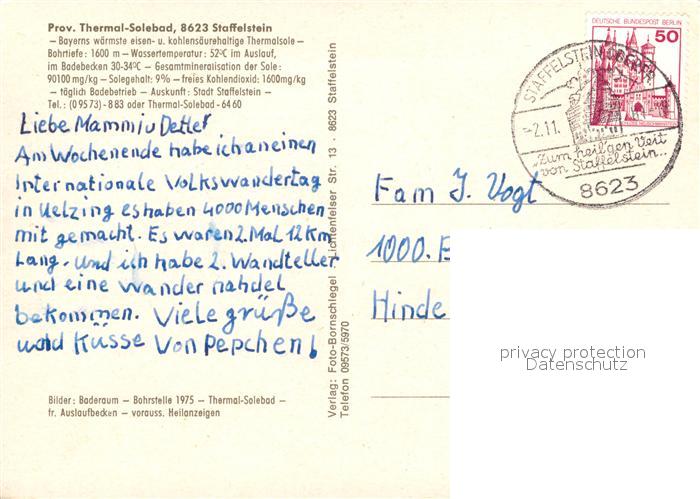 Prov. Thermal-Solebad, 8623 Staffelstein
— Bayerns wärmste eisen- u. kohlensäurehaltige Thermalsole —
Bohrtiefe: 1600 m — Wassertemperatur: 52°C im Auslauf,
im Badebecken 30-34°C — Gesamtmineralisation der Sole:
90100 mg/kg — Solegehalt: 9% — freies Kohlendioxid: 1600mg/kg
— täglich Badebetrieb — Auskunft: Stadt Staffelstein —
Tel.: (09573)-883 oder Thermal-Solebad-6460
Liebe Mammiu Detlef
Am Wochenende habe ich an einen
Internationale Volkswandertag
in Uelzing es haben 4000 Menschen
mit gemacht. Es waren 2. Mal 12 Km
Lang. und ich habe 2. Wandteller
und eine Wander nahdel
bekommen. Viele grüße
und Küsse von Pepchen!
Bilder: Baderaum — Bohrstelle 1975 — Thermal-Solebad —
fr. Auslaufbecken — vorauss. Heilanzeigen
Verlag: Foto-Bornschlegel Lichtenfelser Str. 13 · 8623 Staffelstein
Telefon 09573/5970
DEUTSCHE BUNDESPOST BERLIN
50
STAFFELSTEIN, OBERFR.
-2.11.
„Zum heil'gen Veit
von Staffelstein...
8623
Fam J. Vogt
1000. B
Hinde
privacy protection
Datenschutz